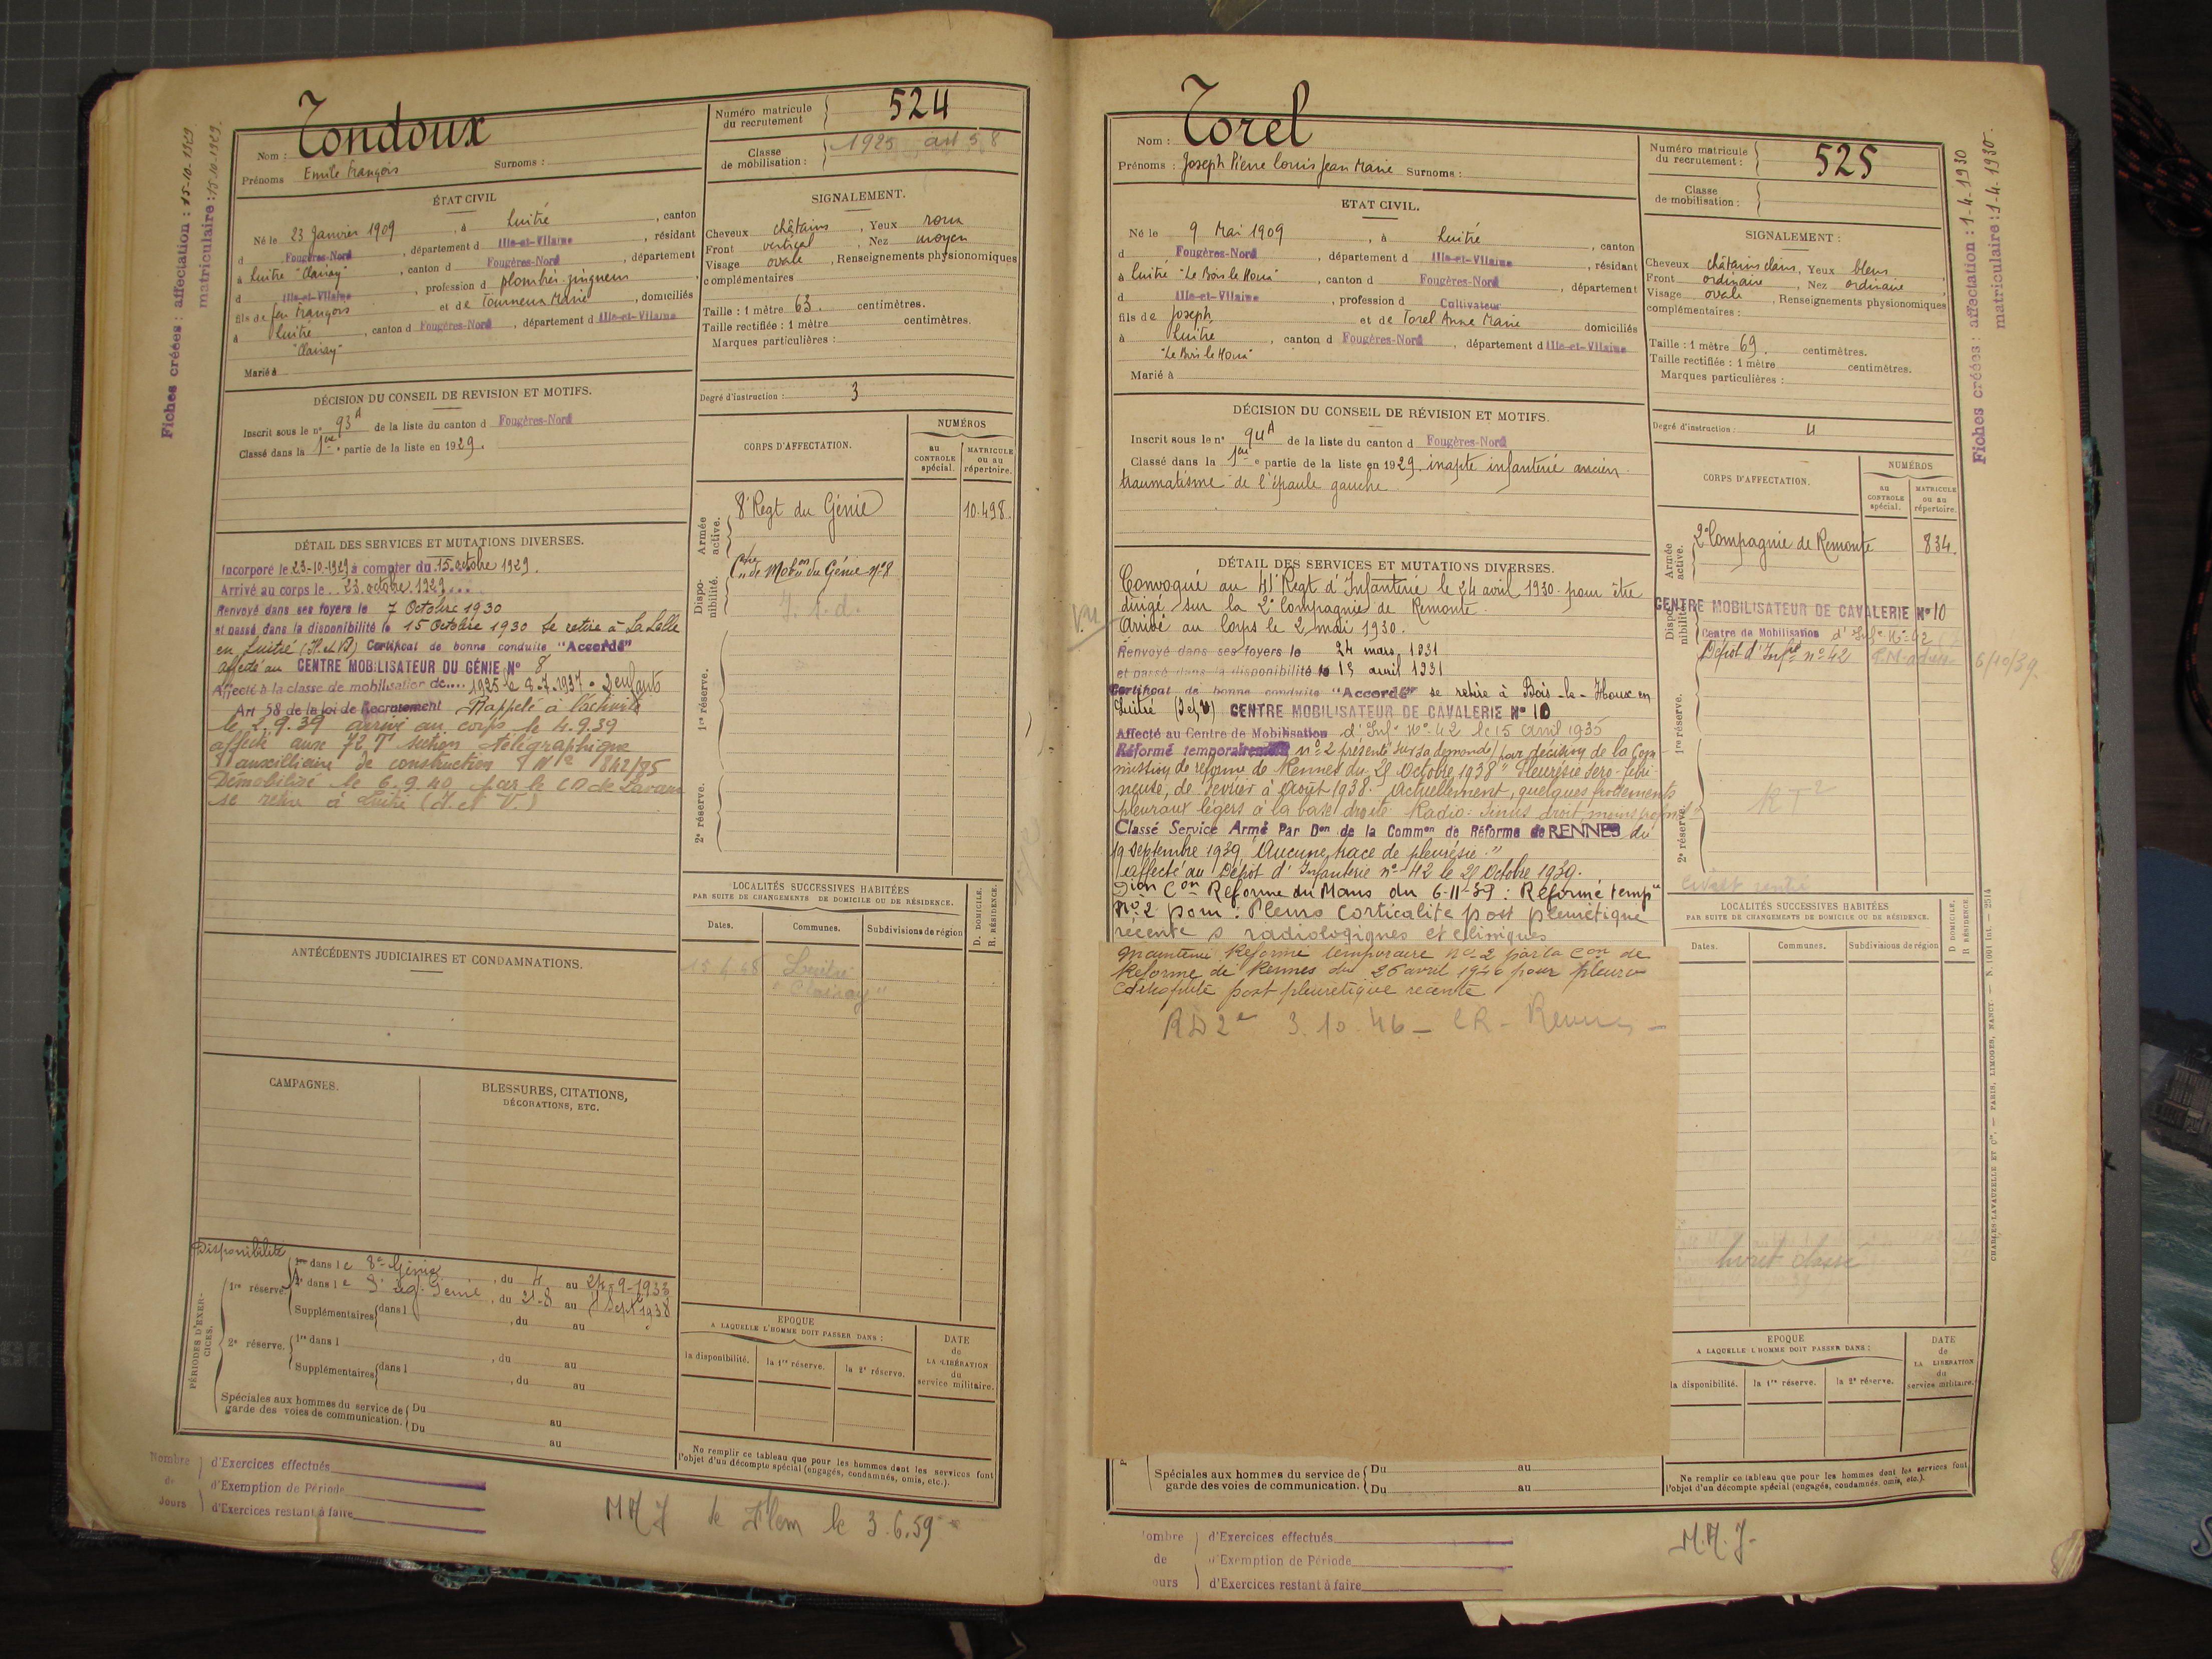 Fiches créées : affectation : 15-10-1929
matriculaire : 15-10-1929.
Nom : Tondoux
Prénoms Emile François Surnoms :
Numéro matricule
du recrutement
524
Classe
de mobilisation :
1925 art 58
ÉTAT CIVIL
Né le 23 Janvier 1909, à Luitré, canton
d Fougères-Nord, département d Ille-et-Vilaine, résidant
à Luitré "Clairay", canton d Fougères-Nord, département
d Ille-et-Vilaine, profession d plombier-zingueur
fils de feu François et de Tourneux Marie, domiciliés
à Luitré, canton d Fougères-Nord, département d Ille-et-Vilaine
"Clairay"
Marié à
SIGNALEMENT.
Cheveux châtains, Yeux roux
Front vertical, Nez moyen
Visage ovale, Renseignements physionomiques
complémentaires
Taille : 1 mètre 63. centimètres.
Taille rectifiée : 1 mètre centimètres.
Marques particulières :
Degré d'instruction : 3
DÉCISION DU CONSEIL DE REVISION ET MOTIFS.
Inscrit sous le nº 93 A de la liste du canton d Fougères-Nord
Classé dans la 1ère partie de la liste en 1929.
CORPS D'AFFECTATION.
NUMÉROS
au
CONTROLE
spécial.
MATRICULE
ou au
répertoire.
Armée
active.
8e Regt du Génie 10.498.
Dispo-
nibilité.
Cre de Mobon du Génie nº8
1re réserve.
2e réserve.
DÉTAIL DES SERVICES ET MUTATIONS DIVERSES.
Incorporé le 23-10-1929 à compter du 15 octobre 1929.
Arrivé au corps le 23 octobre 1929
Renvoyé dans ses foyers le 7 Octobre 1930
et passé dans la disponibilité le 15 Octobre 1930 se retire à La Lelle
en Luitré (I. et V) Certificat de bonne conduite "Accordé"
affecté au CENTRE MOBILISATEUR DU GÉNIE Nº 8
Affecté à la classe de mobilisation de.... 1925 le 8.7.1937 2 enfants
Art 58 de la loi de Recrutement Rappelé à l'activité
le 2.9.39 arrivé au corps le 4.9.39
affecté aux 72 7e section télégraphique
auxilliaire de construction 842/75
Démobilisé le 6.9.40 par le CD de
se retire à Luitré (I. et V.)
ANTÉCÉDENTS JUDICIAIRES ET CONDAMNATIONS.
CAMPAGNES.
BLESSURES, CITATIONS,
DÉCORATIONS, ETC.
LOCALITÉS SUCCESSIVES HABITÉES
PAR SUITE DE CHANGEMENTS DE DOMICILE OU DE RÉSIDENCE.
D. DOMICILE.
R. RÉSIDENCE.
Dates. Communes. Subdivisions de région
Luitré
"Clairay"
PÉRIODES D'EXERCICES.
Disponibilité
1re réserve
1re dans le 8e Génie, du 4 au 24-9-1933
2e dans le 8e Rég. Génie, du 21-8 au Sept 1938
Supplémentaires dans l, du au
2e réserve.
1re dans l, du au
Supplémentaires dans l, du au
Spéciales aux hommes du service de
garde des voies de communication.
Du au
Du au
EPOQUE
A LAQUELLE L'HOMME DOIT PASSER DANS :
la disponibilité. la 1re réserve. la 2e réserve.
DATE
de
LA LIBÉRATION
du
service militaire.
Ne remplir ce tableau que pour les hommes dont les services font
l'objet d'un décompte spécial (engagés, condamnés, omis, etc.).
Nombre
de
Jours
d'Exercices effectués
d'Exemption de Période
d'Exercices restant à faire
le 3.6.59
Nom : Torel
Prénoms : Joseph Pierre Louis Jean Marie Surnoms :
Numéro matricule
du recrutement :
525
Classe
de mobilisation :
Fiches créées : affectation : 1-4-1930
matriculaire : 1-4-1930.
ETAT CIVIL.
Né le 9 Mai 1909, à Luitré, canton
d Fougères-Nord, département d Ille-et-Vilaine, résidant
à Luitré "Le Bois le Houx", canton d Fougères-Nord, département
d Ille-et-Vilaine, profession d Cultivateur
fils de Joseph et de Torel Anne Marie domiciliés
à Luitré, canton d Fougères-Nord, département d Ille-et-Vilaine
"Le Bois le Houx"
Marié à
SIGNALEMENT :
Cheveux châtains clairs, Yeux bleus
Front ordinaire, Nez ordinaire
Visage ovale, Renseignements physionomiques
complémentaires :
Taille : 1 mètre 69. centimètres.
Taille rectifiée : 1 mètre centimètres.
Marques particulières :
Degré d'instruction : 4
DÉCISION DU CONSEIL DE RÉVISION ET MOTIFS.
Inscrit sous le nº 94 A de la liste du canton d Fougères-Nord
Classé dans la 1ère partie de la liste en 1929. inapte infanterie ancien
traumatisme de l'épaule gauche
CORPS D'AFFECTATION.
NUMÉROS
au
CONTROLE
spécial.
MATRICULE
ou au
répertoire.
Armée
active.
2e Compagnie de Remonte 834.
Dispo-
nibilité.
CENTRE MOBILISATEUR DE CAVALERIE Nº 10
Centre de Mobilisation d'Infie Nº 42
Dépôt d'Infie nº 42 6/10/39
1re réserve.
2e réserve.
RT2
DÉTAIL DES SERVICES ET MUTATIONS DIVERSES.
Vu
Convoqué au 41e Regt d'Infanterie le 24 avril 1930 pour être
dirigé sur la 2e Compagnie de Remonte.
Arrivé au Corps le 2 mai 1930.
Renvoyé dans ses foyers le 24 mars 1931
et passé dans la disponibilité le 15 avril 1931
Certificat de bonne conduite "Accordé" se retire à Bois-le-Houx en
Luitré (I et V) CENTRE MOBILISATEUR DE CAVALERIE Nº 10
Affecté au Centre de Mobilisation d'Infie Nº 42 le 15 avril 1935
Réformé temporaire nº 2 (présenté sur sa demande) par décision de la Com-
mission de réforme de Rennes du 21 Octobre 1938 "Pleurésie séro-fibri-
neuse, de février à août 1938. Actuellement, quelques frottements
pleuraux légers à la base droite Radio : Sinus droit moins
Classé Service Armé Par Don de la Common de Réforme de RENNES du
19 Septembre 1939 "Aucune trace de pleurésie."
affecté au Dépôt d'Infanterie nº 42 le 21 Octobre 1939.
Dion Con Réforme du Mans du 6-11-39 : Réformé tempre
Nº 2 pour : Pleuro corticalite post pleurétique
récente s radiologiques et cliniques
Maintenu Réformé temporaire nº 2 par la Con de
Réforme de Rennes du 26 avril 1940 pour pleuro
corticalité post pleurétique récente
RD2e 3.10.46 - CR - Rennes -
LOCALITÉS SUCCESSIVES HABITÉES
PAR SUITE DE CHANGEMENTS DE DOMICILE OU DE RÉSIDENCE.
D DOMICILE.
R RÉSIDENCE
Dates. Communes. Subdivisions de région
livret classé
EPOQUE
A LAQUELLE L'HOMME DOIT PASSER DANS :
la disponibilité. la 1re réserve. la 2e réserve.
DATE
de
LA LIBÉRATION
du
service militaire.
Spéciales aux hommes du service de
garde des voies de communication.
Du au
Du au
Ne remplir ce tableau que pour les hommes dont les services font
l'objet d'un décompte spécial (engagés, condamnés, omis, etc.).
CHARLES-LAVAUZELLE ET Cie. — PARIS, LIMOGES, NANCY. — N. 1001 int. — 2514
ombre
de
ours
d'Exercices effectués
d'Exemption de Période
d'Exercices restant à faire
M.M.J.